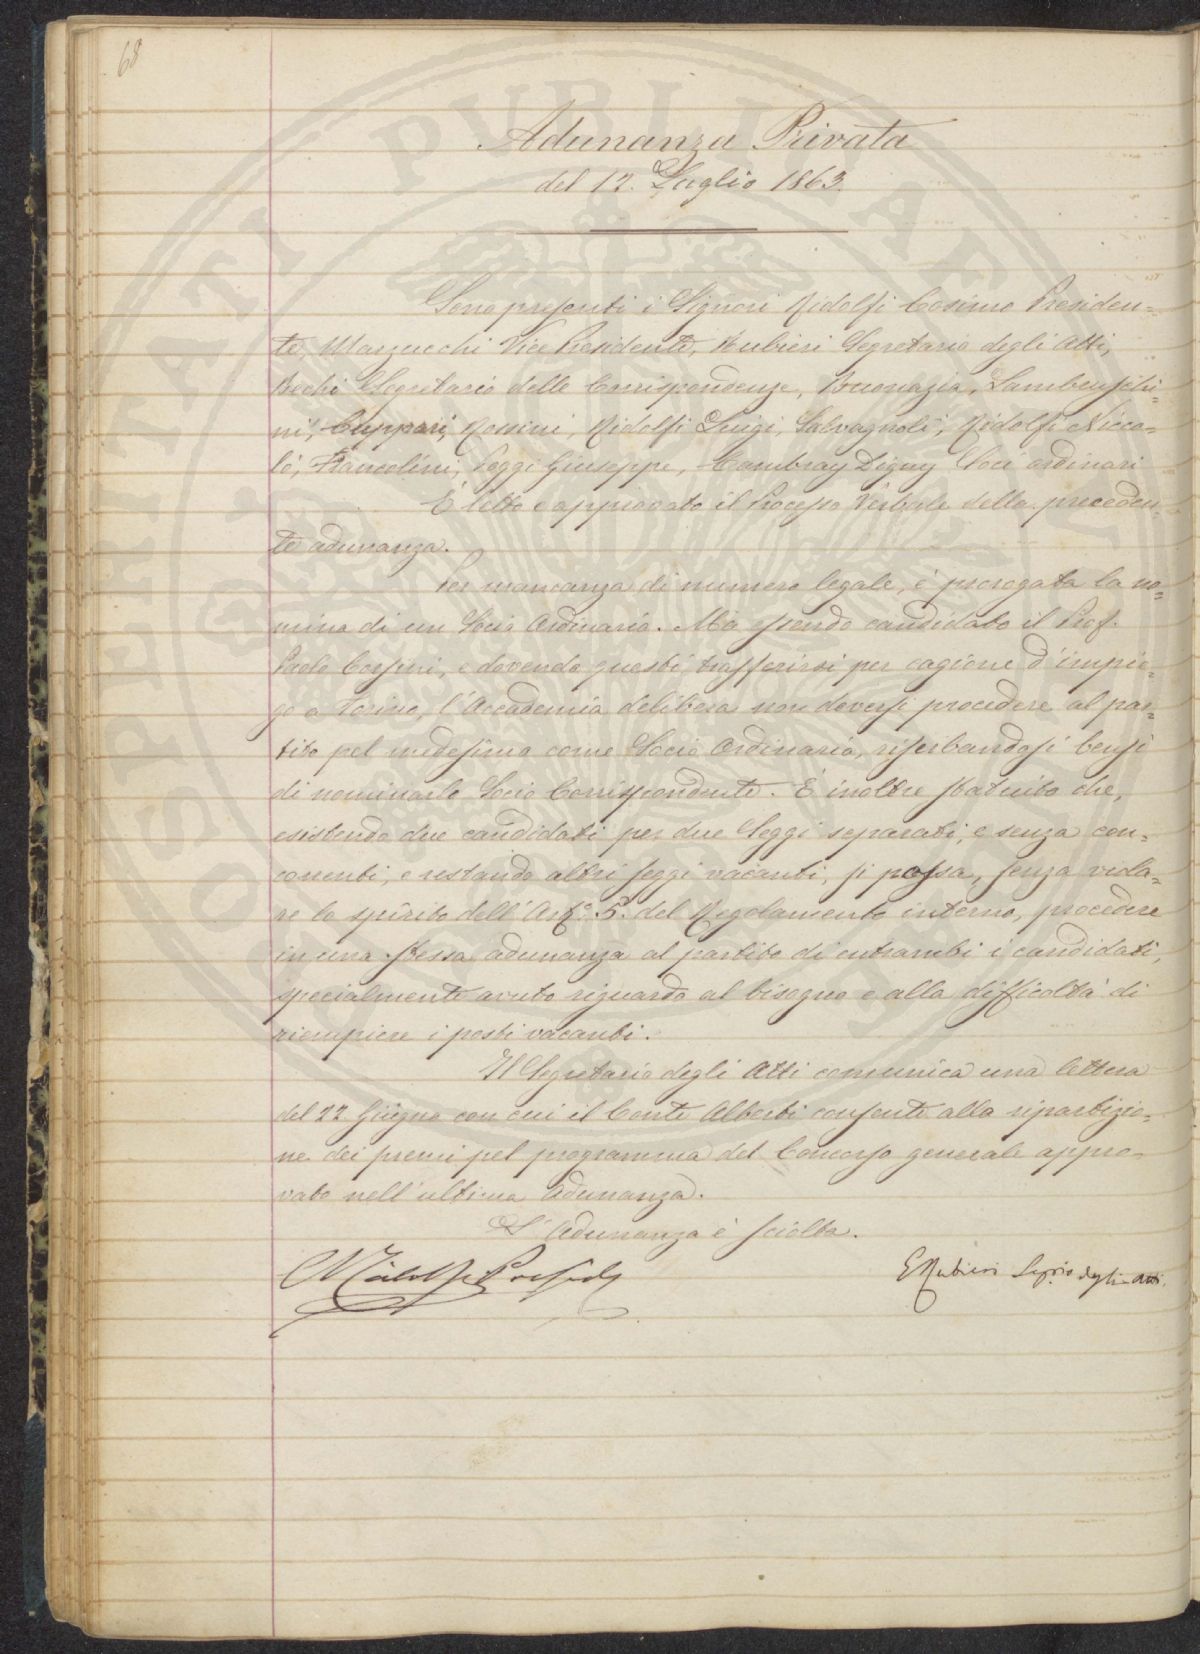 68
Adunanza Privata
del 12. Luglio 1863.
Sono presenti i Signori Ridolfi Cosimo Presiden=
te, Marzucchi Vice Presidente, Rubieri Segretario degli Atti,
Bechi Segretario delle Corrispondenze, Buonazia, Lambruschi=
ni, Cuppari, Rossini, Ridolfi Luigi, Salvagnoli, Ridolfi Nicco=
lò, Franceschini, Poggi Giuseppe, Cambray Digny Soci ordinari
È letto e approvato il Processo Verbale della preceden=
te adunanza.
Per mancanza di numero legale, è prorogata la no=
mina di un Socio Ordinario. Ma essendo candidato il Prof.
Paolo Corsini, e dovendo questi trasferirsi per cagione d'impie=
go a Torino, l'Accademia delibera non doversi procedere al par=
tito pel medesimo come Socio Ordinario, riserbandosi bensì
di nominarlo Socio Corrispondente. È inoltre statuito che,
esistendo due candidati per due Seggi separati, e senza con=
correnti, e restando altri seggi vacanti, si possa, senza viola=
re lo spirito dell'Art.º 5.º del Regolamento interno, procedere
in una stessa adunanza al partito di entrambi i candidati,
specialmente avuto riguardo al bisogno e alla difficoltà di
riempiere i posti vacanti.
Il Segretario degli Atti comunica una lettera
del 22 Giugno con cui il Conte Alberti consente alla ripartizio=
ne dei premi pel programma del Concorso generale appro=
vato nell'ultima adunanza.
L'Adunanza è sciolta.
C Ridolfi Presid.
E Rubieri Segrio degli Atti.